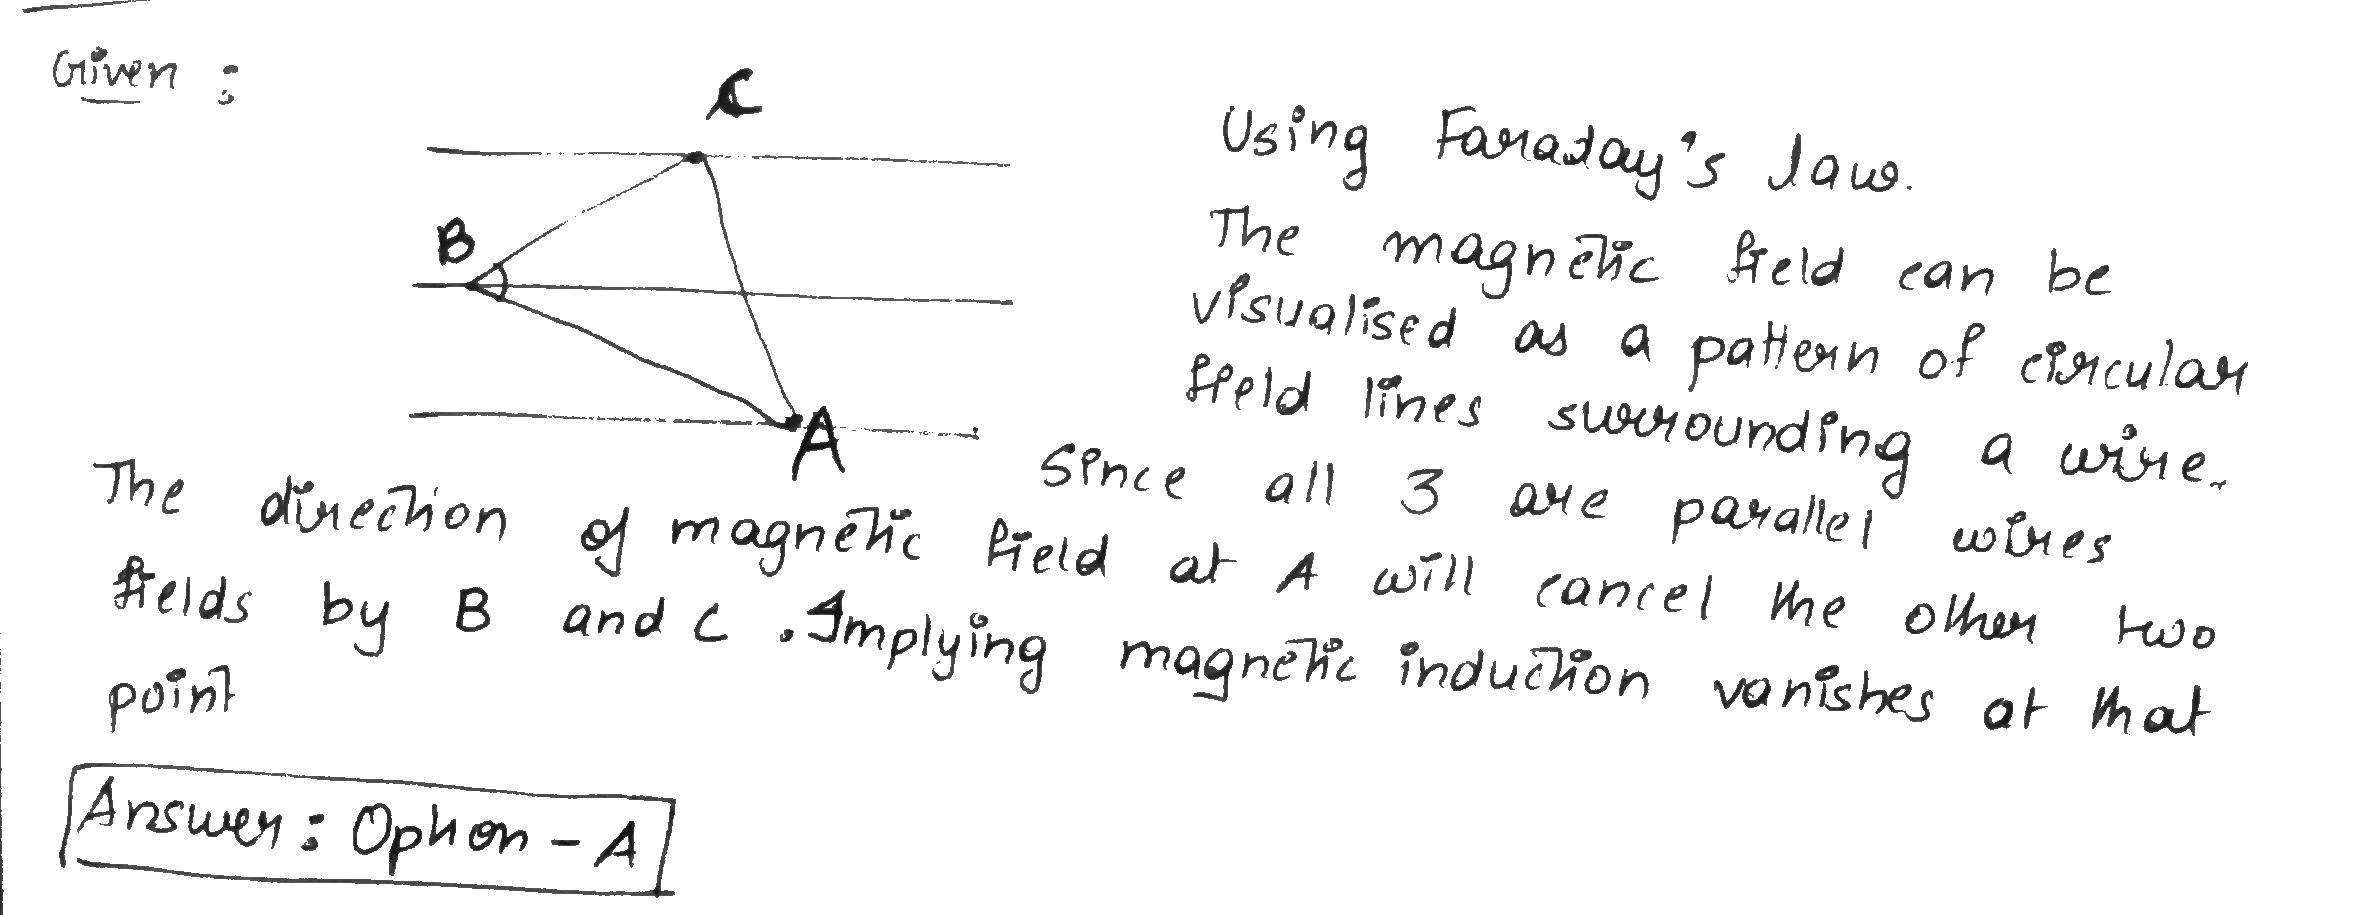 Given :
C
B
A
Using Faraday's law.
The magnetic field can be
visualised as a pattern of circular
field lines surrounding a wire.
Since all 3 are parallel wires
The direction of magnetic field at A will cancel the other two
fields by B and C. Implying magnetic induction vanishes at that
point
Answer: Option - A